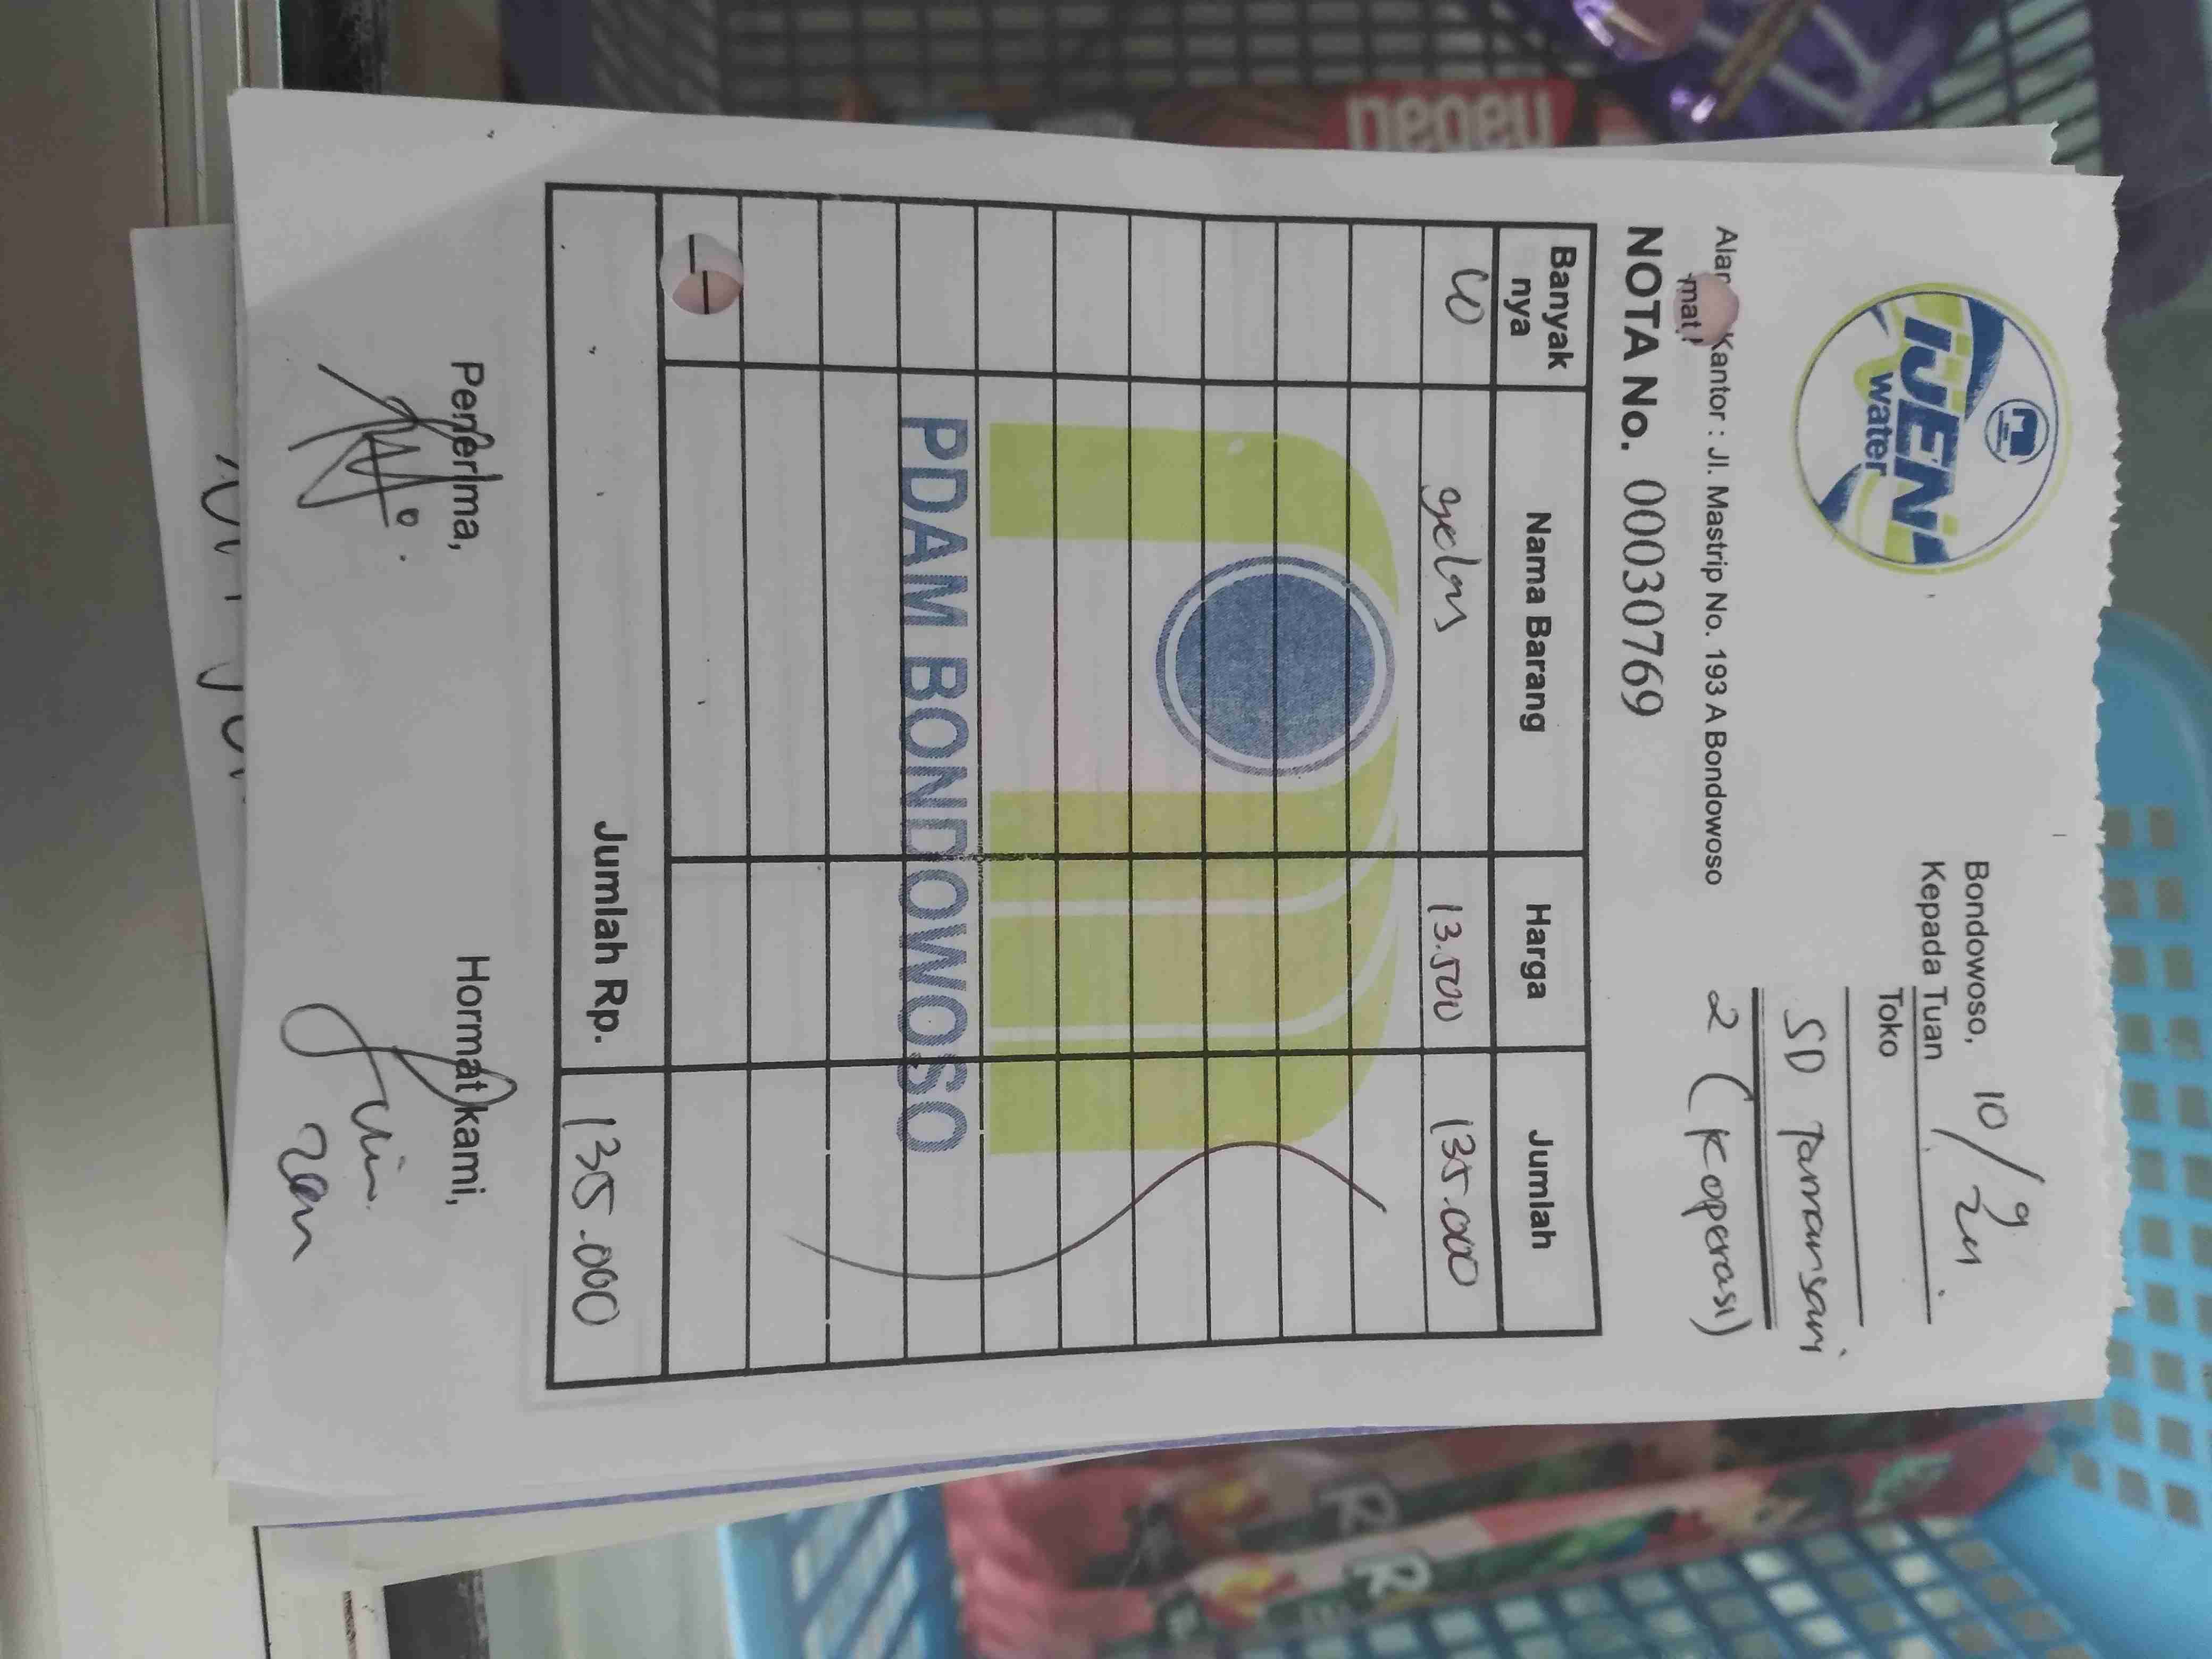 IJEN
water
Bondowoso, 10/9 24
Kepada Tuan
Toko
SD Tamansari
2 (Koperasi)
Alamat Kantor : Jl. Mastrip No. 193 A Bondowoso
NOTA No. 00030769
Banyak nya Nama Barang Harga Jumlah
10 gelas 13.500 135.000
PDAM BONDOWOSO
Jumlah Rp. 135.000
Penerima, Hormat kami,
nabati
R
R